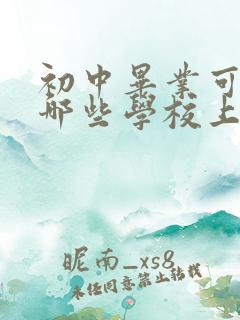 初中畢業可
哪些學校上
昵南_xs8
未经同意禁止转载